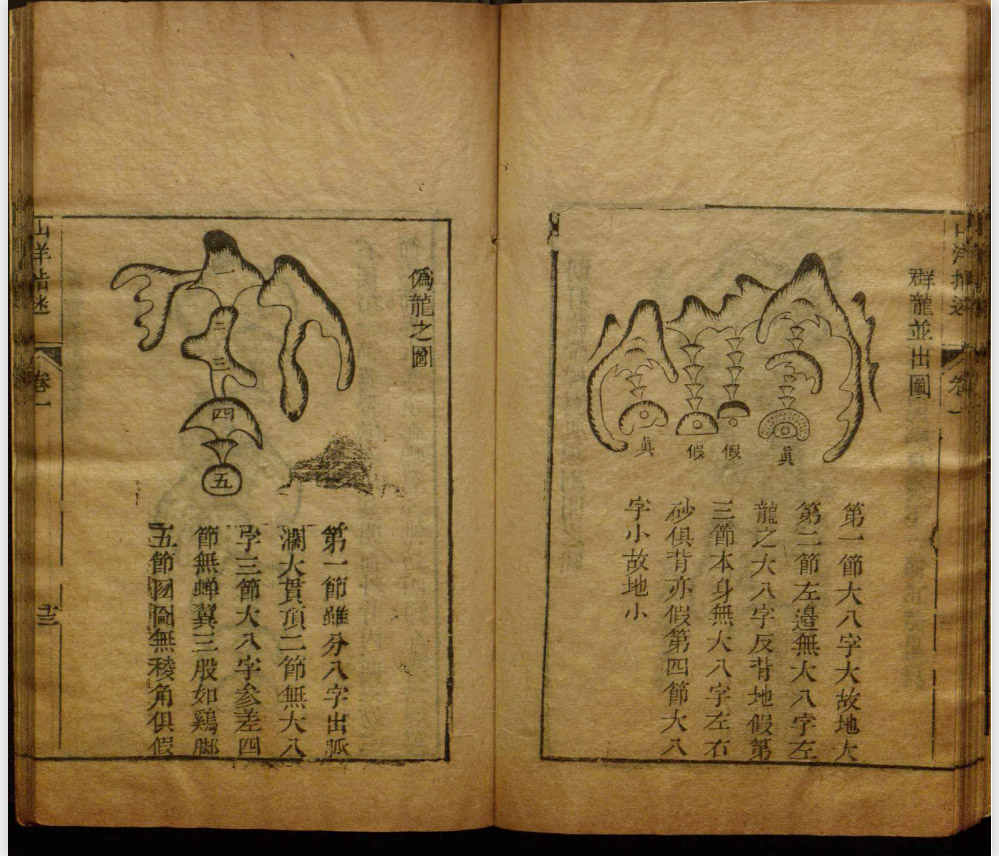 山洋指迷
卷一
群龍並出圖
眞
假
假
眞
第一節大八字大故地大
第二節左邊無大八字左
龍之大八字反背地假第
三節本身無大八字左右
砂俱背亦假第四節大八
字小故地小
偽龍之圖
一
二
三
四
五
第一節雖分八字出脈
濶大貫頂二節無大八
字三節大八字參差四
節無蟬翼三股如鷄脚
五節圇圇無稜角俱假
山洋指迷
卷一